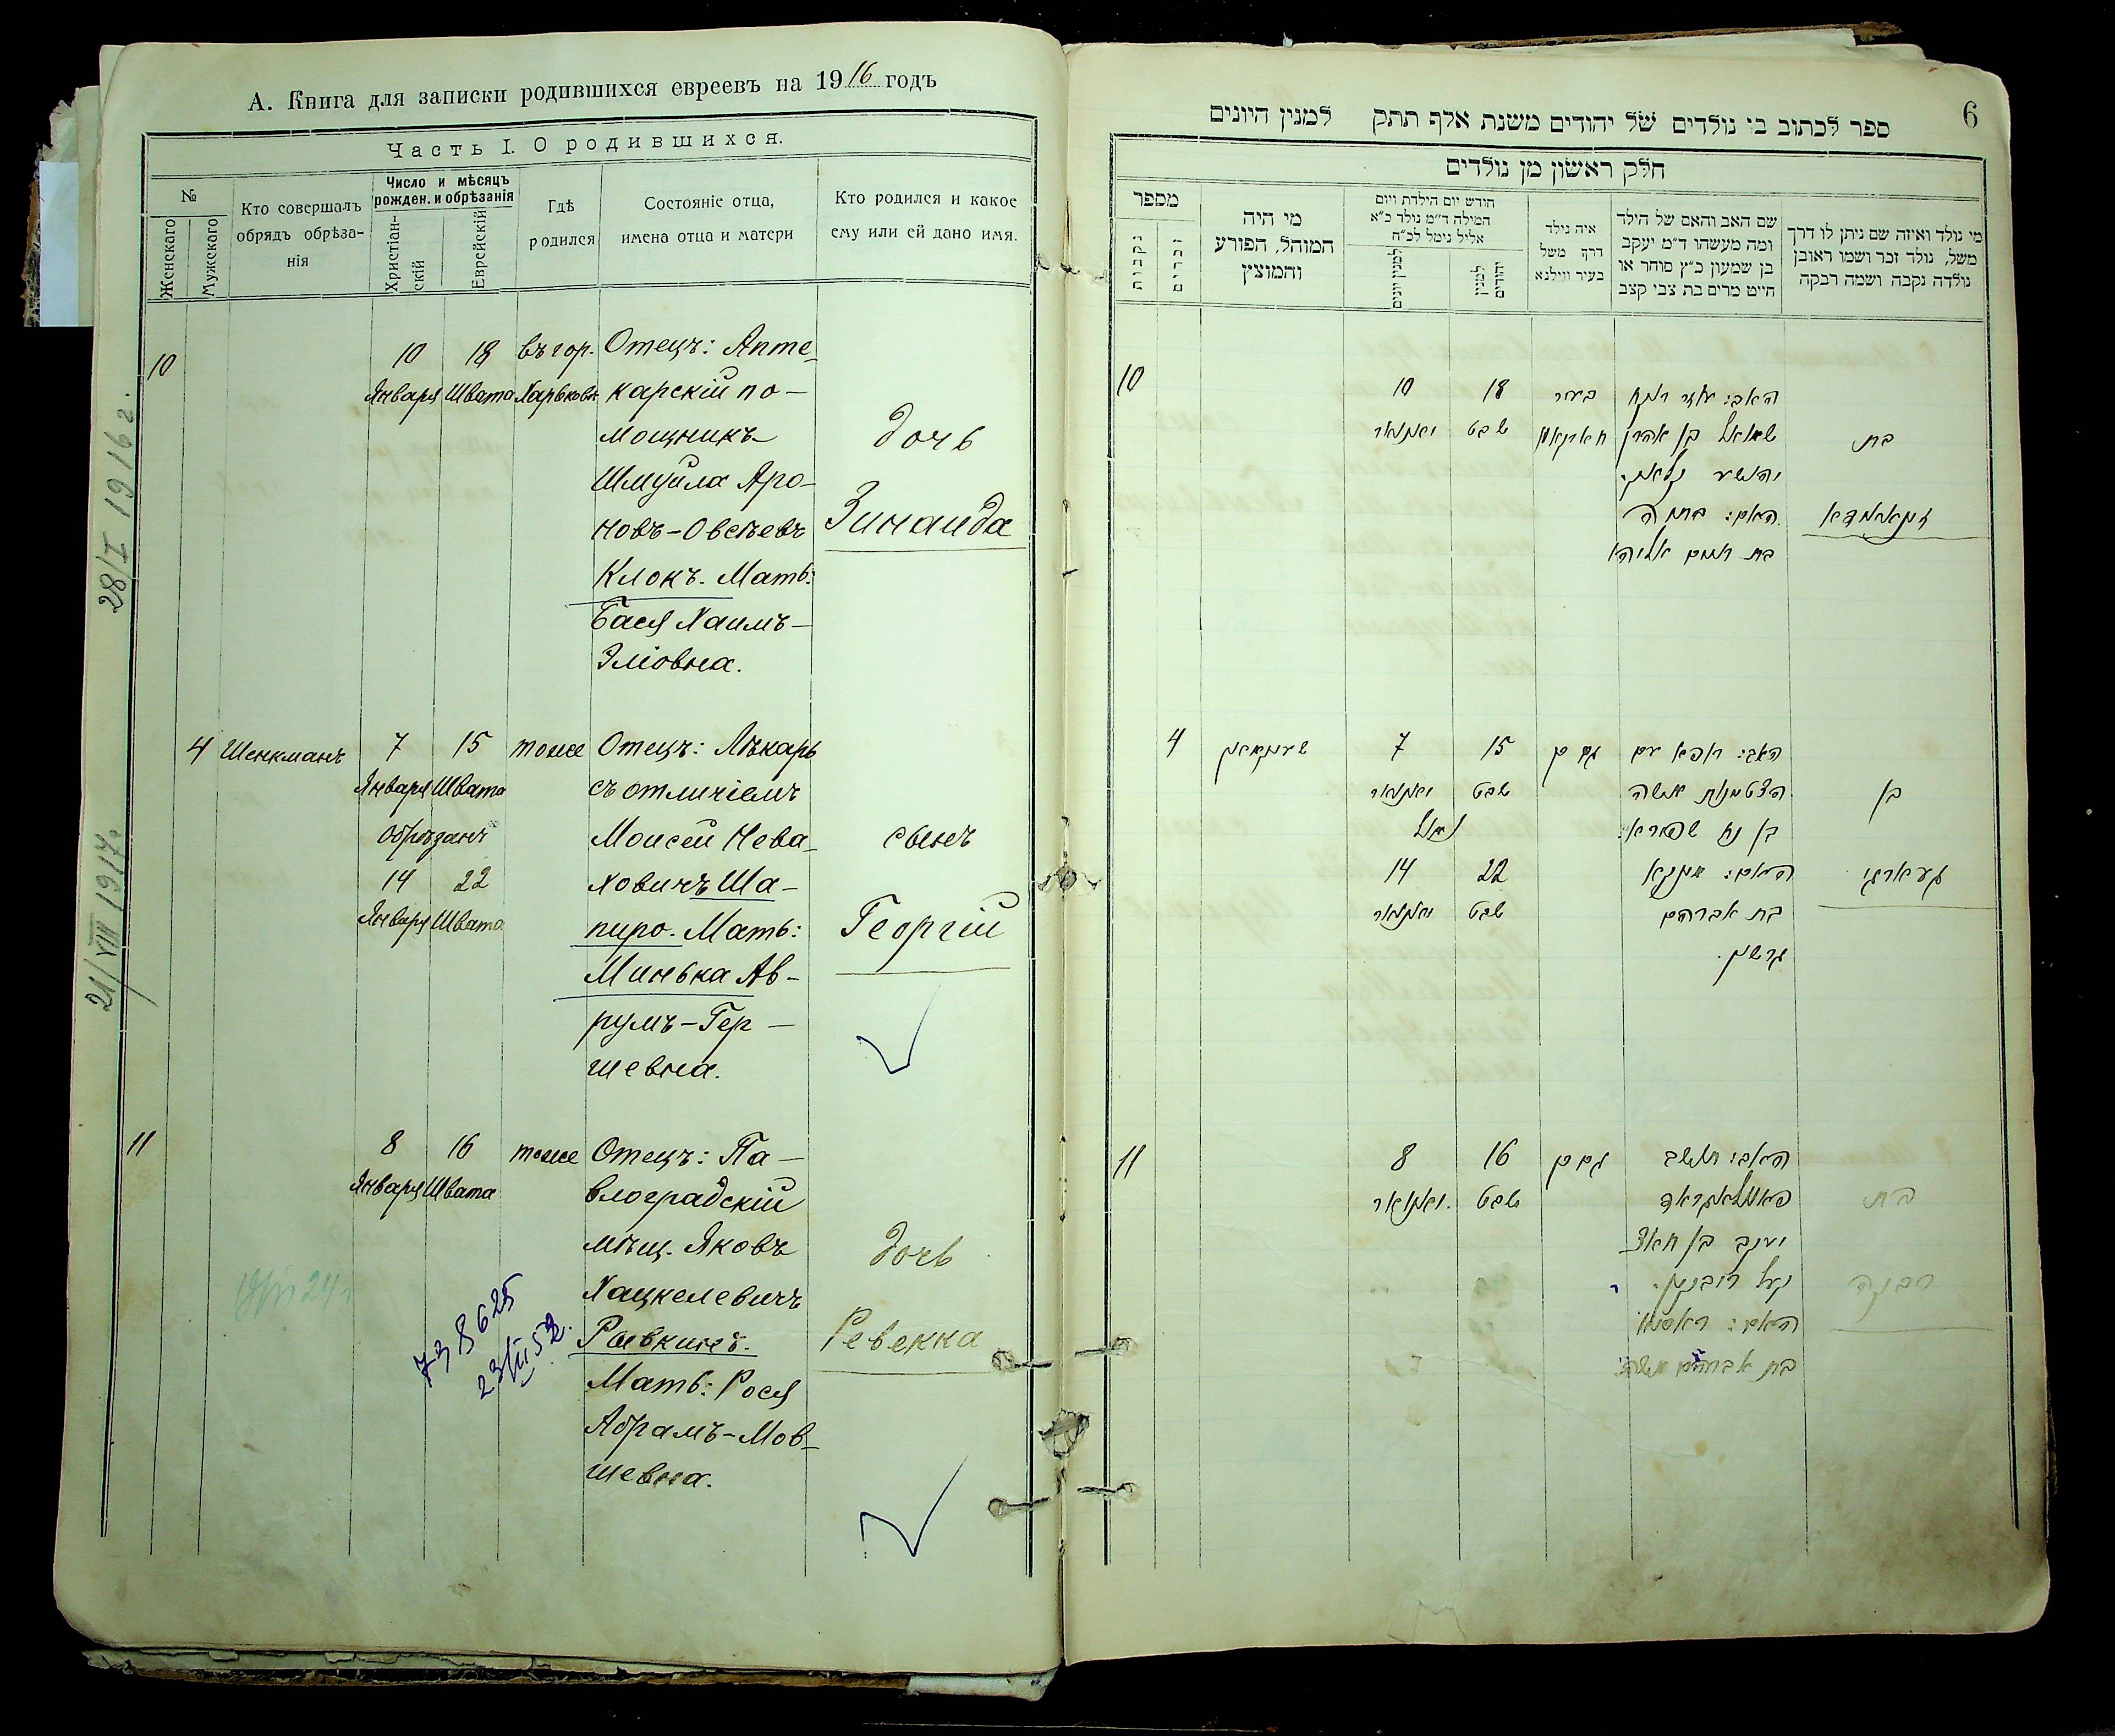 А. Книга для записки родившихся евреевъ на 1916 годъ
Часть I. О родившихся.
№
Женскаго
Мужескаго
Кто совершалъ
обрядъ обрѣза-
нія
Число и мѣсяцъ
рожден. и обрѣзанія
Христіан-
скій
Еврейскій
Гдѣ
родился
Состояніе отца,
имена отца и матери
Кто родился и какое
ему или ей дано имя.
28/I 1916 г.
10 10 18 въ гор. Отецъ: Апте-
Января Швата Харьковѣ карскій по-
мощникъ
дочь
Шмуйла Аро-
новъ-Овсѣевъ
Зинаида
Клокъ. Мать:
Бася Хаимъ-
Эліовна.
21/VIII 1917.
4 Шенкманъ 7 15 тоже Отецъ: Лѣкарь
Января Швата съ отличіемъ
Обрѣзанъ Моисей Нева-
сынъ
14 22 ховичъ Ша-
Января Швата пиро. Мать:
Георгій
Минька Ав-
румъ-Гер-
шевна.
11 8 16 тоже Отецъ: Па-
Января Швата влоградскій
мѣщ. Яковъ
дочь
Хацкелевичъ
738625
Рывкинъ.
Ревекка
Мать: Рося
Абрамъ-Мов-
шевна.
6
ספר לכתוב בו נולדים של יהודים משנת אלף תתק למנין היונים
חלק ראשון מן נולדים
מספר
נקבות
זכרים
מי היה
המוהל, הפורע
והמוצץ
חודש יום הילדת ויום
המילה ד״מ נולד כ״א
אליל נימל לכ״ח
למנין יונים
למנין
יהודים
איה נילד
דרך משל
בעיר ווילנא
שם האב והאם של הילד
ומה מעשהו ד״מ יעקב
בן שמעון כ״ץ סוחר או
חייט מרים בת צבי קצב
מי נולד ואיזה שם ניתן לו דרך
משל, נולד זכר ושמו ראובן
נולדה נקבה ושמה רבקה
10 10 18 בעיר האב: עוזר רוקח
יאנואר שבט חארקאוו שמואל בן אהרן
בת
יהושע קלאק.
האם: בתיה
זינאאידא
בת חיים אליהו
4 שענקמאן 7 15 גם פה האב: רופא עם
יאנואר שבט הצטינות משה
בן
נמול בן נח שפירא:
14 22 האם: מינקא
געארגי
יאנואר שבט בת אברהם
גרשון.
11 8 16 גם פה האב: תושב
יאנואר שבט פאוולאגראד
בת
יעקב בן חאצ
קעל ריבקין.
רבקה
האם: ראסיא
בת אברהם משה: